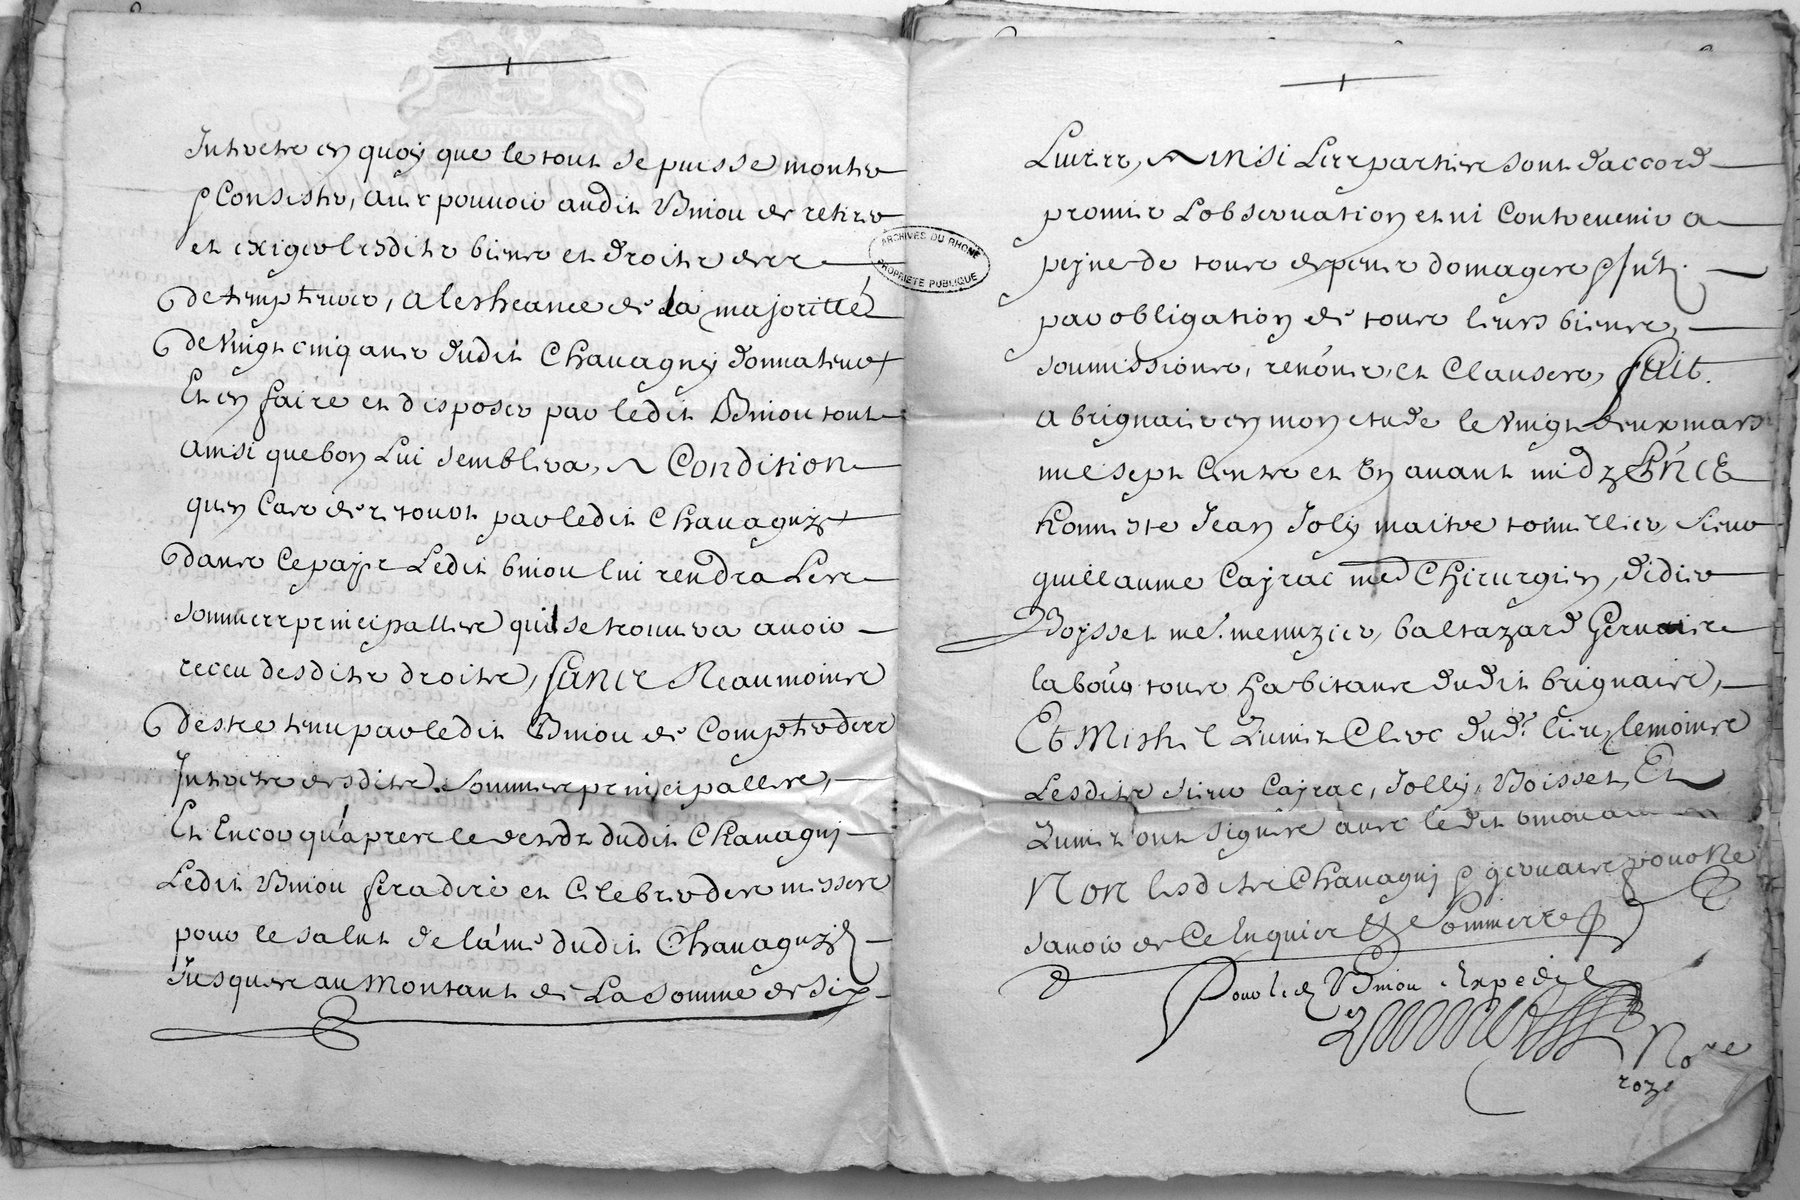 Interetz en quoy que le tout se puisse monter
& Consister, avec pouvoir audit Briou de retirer
et exiger lesditz biens et droitz dez
detempteurs, a lesheance de la majoritté
de Vingt cinq ans dudit Chavagny donnateur
Et en faire et disposer par ledit Briou tout
ainsi que bon Lui semblera, a Condition
quen Cas de retour par ledit Chavagny
dans Ce pays Ledit briou lui rendra Les
sommes principalles quil se trouvera avoir
receu desditz droitz, sans Neaumoins
destre tenu par ledit Briou de Compter des
Interetz desdites Sommes principalles,
Et Encor qu'apres le decedz dudit Chavagny
Ledit Briou fera dire et Celebrer des messes
pour le salut de lame dudit Chavagny
Jusques au Montant de La somme de Six
ARCHIVES DU RHONE
PROPRIETE PUBLIQUE
Livres, Ainsi Les parties sont daccord
promis Lobservation et ni Contrevenir a
peyne de tous despens domages &
par obligation de tous leurs biens,
soumissions, renon.ns et Clauses, fait
a brignais en mon etude le Vingt deux mars
mil sept Centz et Un avant midy
honneste Jean Joly maitre tonnellier, Sieur
guillaume Cayrac me Chirurgien, didier
Boysset me. menuzier, baltazard Gervaise
labour tous habitans dudit brignais,
Et Mishel Zumit Clerc dud. lieu temoins
Lesditz Sieur Cayrac, Jolly, Boisset, Et
Zumit ont signés avec ledit briou
Non lesditz Chavagny & gervaise pour Ne
savoir de Ce Enquis & Sommes
Pour led. Briou Expedié
Nore
roz